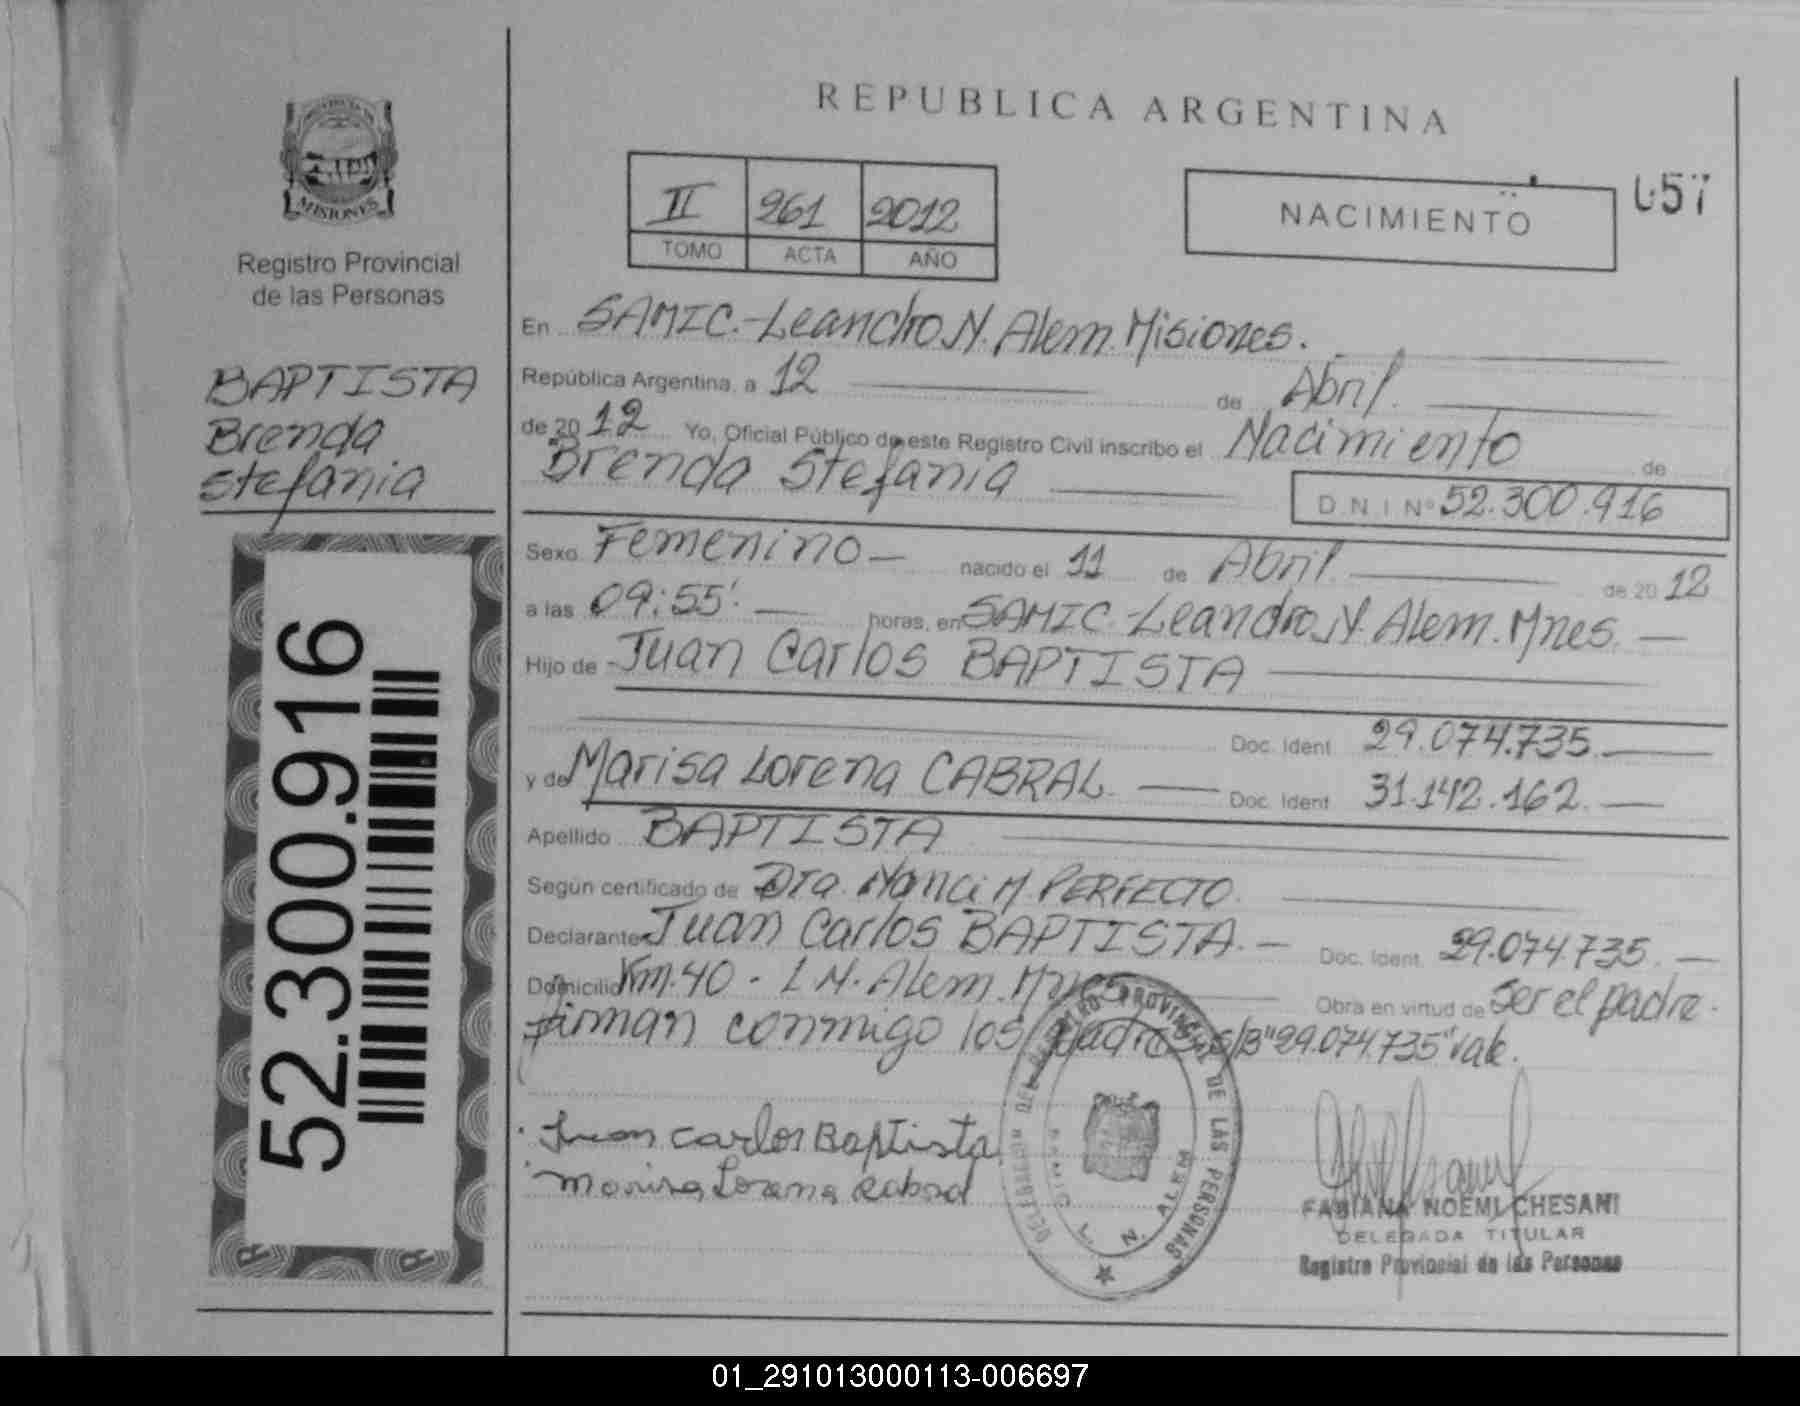 REPUBLICA ARGENTINA
MISIONES
Registro Provincial
de las Personas
BAPTISTA
Brenda
Stefania
52.300.916
II 961 2012
TOMO ACTA AÑO
NACIMIENTO
057
En SAMIC.-Leandro N. Alem. Misiones.
República Argentina, a 12 de Abril.
de 2012 Yo, Oficial Público de este Registro Civil inscribo el Nacimiento de
Brenda Stefania D.N.I Nº 52.300.916
Sexo Femenino nacido el 11 de Abril. de 2012
a las 09:55'. horas, en SAMIC.-Leandro N. Alem. Mnes.
Hijo de Juan Carlos BAPTISTA
Doc. Ident 29.074.735.
y de Marisa Lorena CABRAL Doc. Ident 31.142.162.
Apellido BAPTISTA
Según certificado de Dra. Nanci M. PERFECTO.
Declarante Juan Carlos BAPTISTA. Doc. Ident. 29.074.735.
Domicilio Km. 40 - L.N. Alem. Mnes Obra en virtud de Ser el padre.
Firman conmigo los padres. S/B "29.074.735" vale.
Juan Carlos Baptista
Marisa Lorena Cabral
DEL REGISTRO PROVINCIAL DE LAS PERSONAS
SAMIC L. N. ALEM
FABIANA NOEMI CHESANI
DELEGADA TITULAR
Registro Provincial de las Personas
01_291013000113-006697